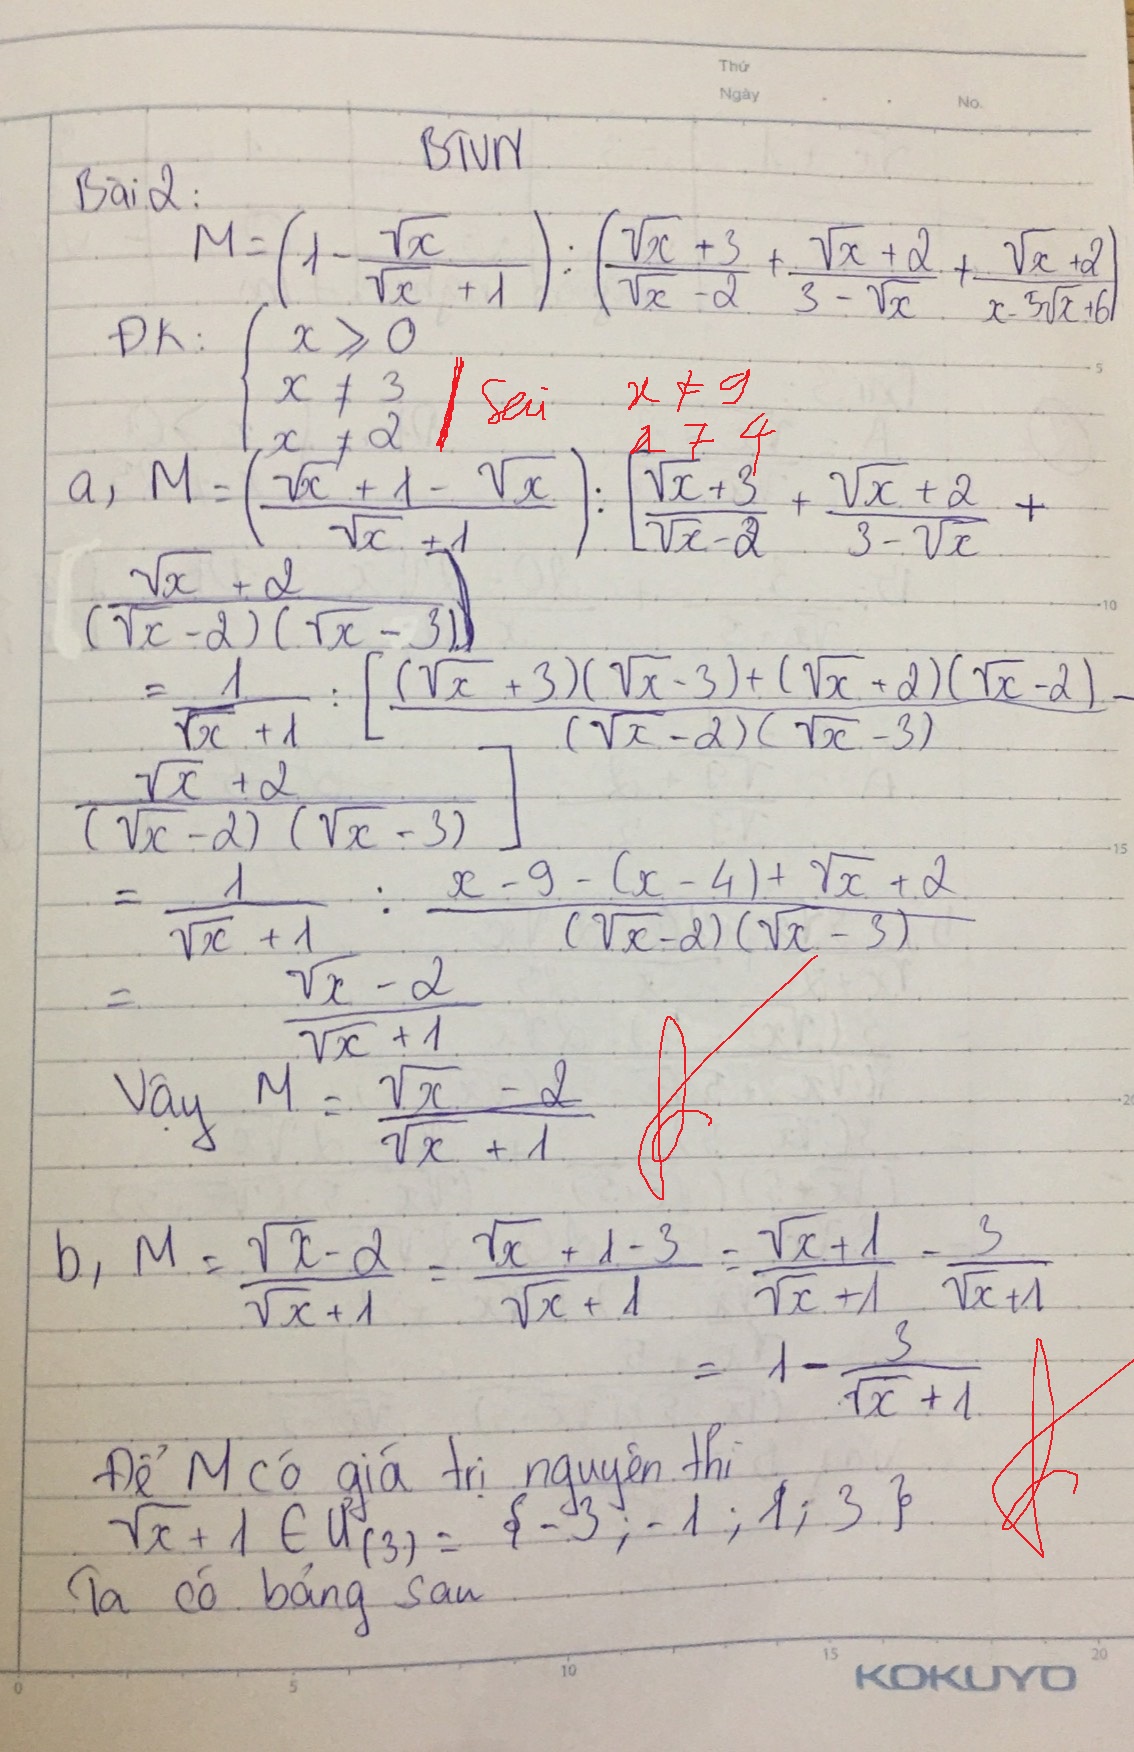 Thứ
Ngày . . No.
BTVN
Bài 2:
M = (1 - √x / (√x + 1)) : ((√x + 3)/(√x - 2) + (√x + 2)/(3 - √x) + (√x + 2)/(x - 5√x + 6))
ĐK: { x ⩾ 0
x ≠ 3
x ≠ 2
Sai x ≠ 9
x ≠ 4
a, M = ((√x + 1 - √x)/(√x + 1)) : [(√x + 3)/(√x - 2) + (√x + 2)/(3 - √x) +
(√x + 2)/((√x - 2)(√x - 3))]
= 1/(√x + 1) : [((√x + 3)(√x - 3) + (√x + 2)(√x - 2))/((√x - 2)(√x - 3)) -
(√x + 2)/((√x - 2)(√x - 3))]
= 1/(√x + 1) : (x - 9 - (x - 4) + √x + 2)/((√x - 2)(√x - 3))
= (√x - 2)/(√x + 1)
Vậy M = (√x - 2)/(√x + 1)
b, M = (√x - 2)/(√x + 1) = (√x + 1 - 3)/(√x + 1) = (√x + 1)/(√x + 1) - 3/(√x + 1)
= 1 - 3/(√x + 1)
Để M có giá trị nguyên thì
√x + 1 ∈ Ư(3) = {-3; -1; 1; 3}
Ta có bảng sau
5
10
15
20
0 5 10 15 20
KOKUYO